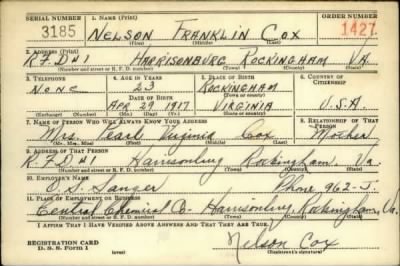 SERIAL NUMBER 1. NAME (Print) ORDER NUMBER
3185 NELSON FRANKLIN COX 1427
(First) (Middle) (Last)
2. ADDRESS (Print)
R.F.D#1 HARRISONBURG ROCKINGHAM VA.
(Number and street or R. F. D. number) (Town) (County) (State)
3. TELEPHONE 4. AGE IN YEARS 5. PLACE OF BIRTH 6. COUNTRY OF CITIZENSHIP
NONE 23 ROCKINGHAM
DATE OF BIRTH (Town or county)
APR 29 1917 VIRGINIA U.S.A.
(Exchange) (Number) (Mo.) (Day) (Yr.) (State or country)
7. NAME OF PERSON WHO WILL ALWAYS KNOW YOUR ADDRESS 8. RELATIONSHIP OF THAT PERSON
Mrs. Pearl Virginia Cox Mother
(Mr., Mrs., Miss) (First) (Middle) (Last)
9. ADDRESS OF THAT PERSON
R.F.D#1 Harrisonburg Rockingham, Va.
(Number and street or R. F. D. number) (Town) (County) (State)
10. EMPLOYER'S NAME
O. S. Sanger Phone 962-J.
11. PLACE OF EMPLOYMENT OR BUSINESS
Central Chemical Co. Harrisonburg, Rockingham, Va.
(Number and street or R. F. D. number) (Town) (County) (State)
I AFFIRM THAT I HAVE VERIFIED ABOVE ANSWERS AND THAT THEY ARE TRUE.
REGISTRATION CARD
D. S. S. Form 1 (over) Nelson Cox
(Registrant's signature)